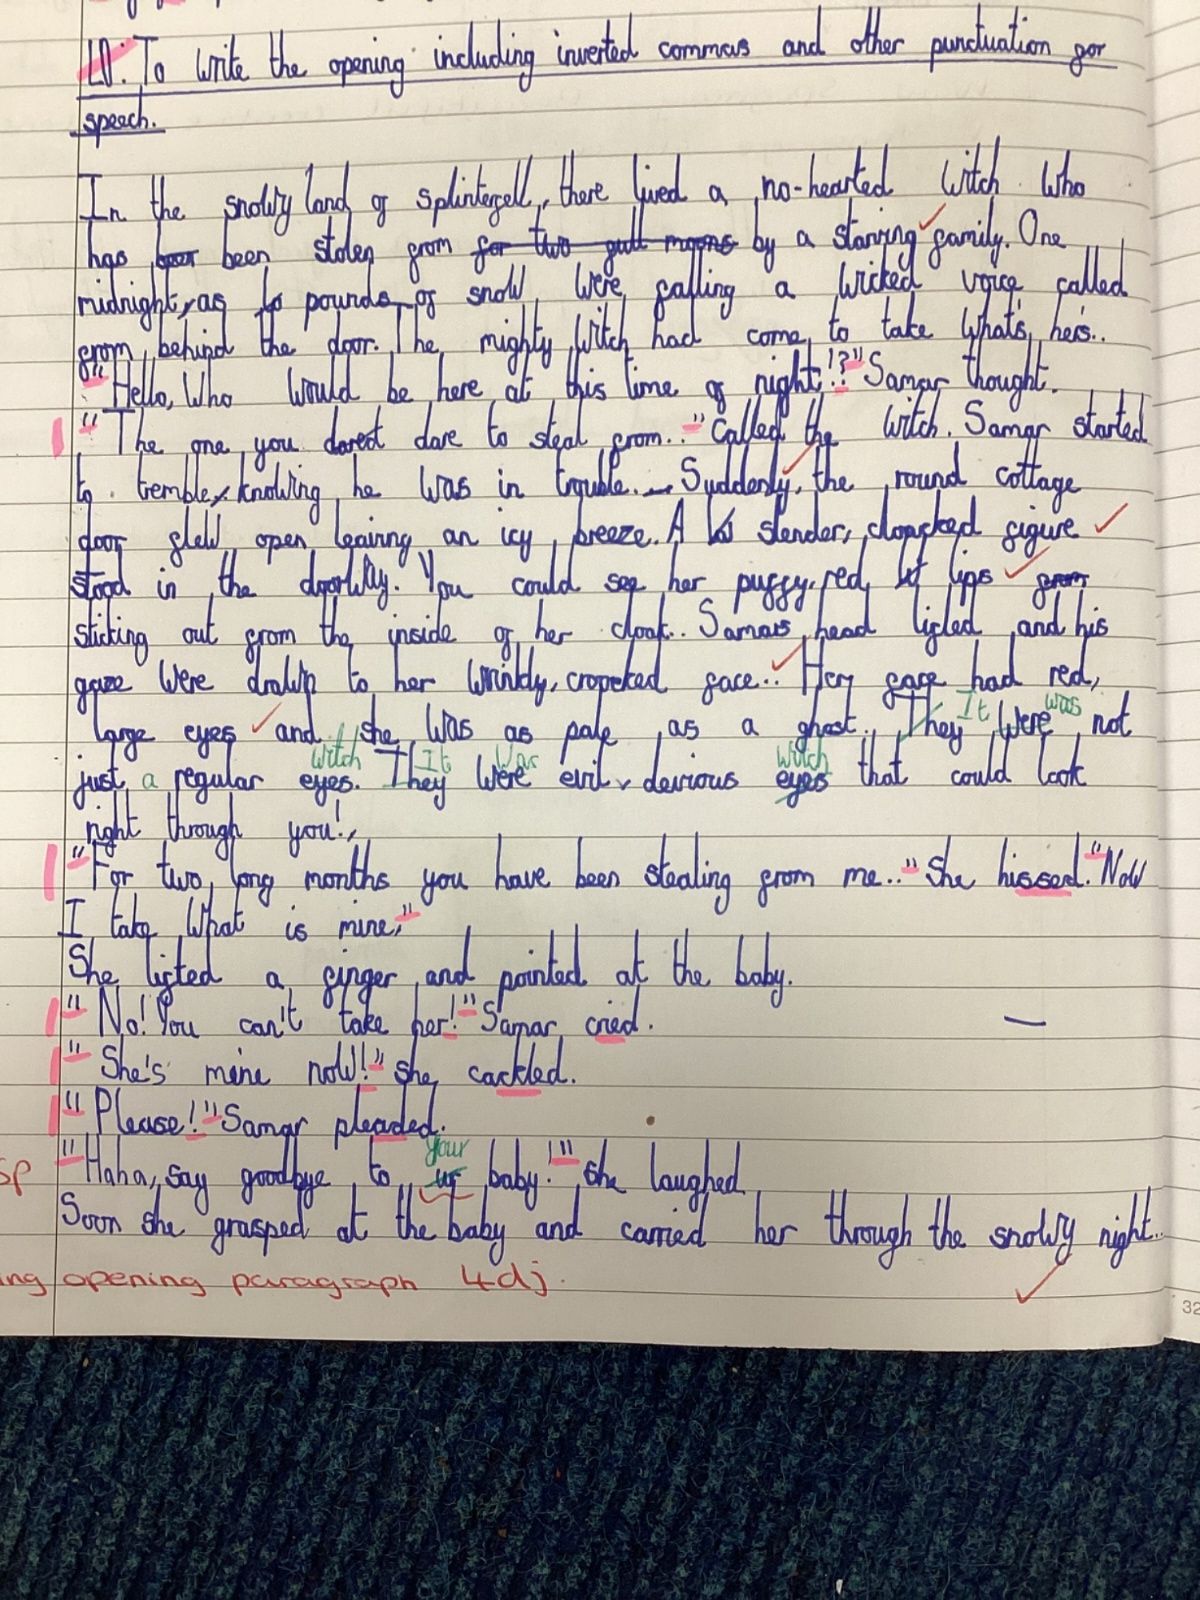 LO: To write the opening including inverted commas and other punctuation for
speech.
In the snowy land of Splinterfell, there lived a no-hearted witch who
has been stolen from for two full moons by a starving family. One
midnight, as pounds of snow were falling a wicked voice called
from behind the door. The mighty witch had come to take what's he's..
"Hello, Who would be here at this time of night!?" Samar thought.
"The one you darest dare to steal from.." Called the witch. Samar started
to tremble, knowing he was in trouble. Suddenly, the round cottage
door flew open leaving an icy breeze. A slender, cloacked figure
stood in the doorway. You could see her puffy, red lips from
sticking out from the inside of her cloak.. Samars head lifted and his
gaze were drawn to her wrinkly, crooked face.. Her face had red,
It was
large eyes and she was as pale as a ghost. They were not
witch It was witch
just a regular eyes. They were evil, devious eyes that could look
right through you!
"For two, long months you have been stealing from me.." She hissed. "Now
I take what is mine,"
She lifted a finger and pointed at the baby.
"No! You can't take her!" Samar cried.
"She's mine now!" she cackled.
"Please!" Samar pleaded.
your
sp "Haha, say goodbye to ur baby!" she laughed
Soon she grasped at the baby and carried her through the snowy night..
ing opening paragraph 4dj.
32